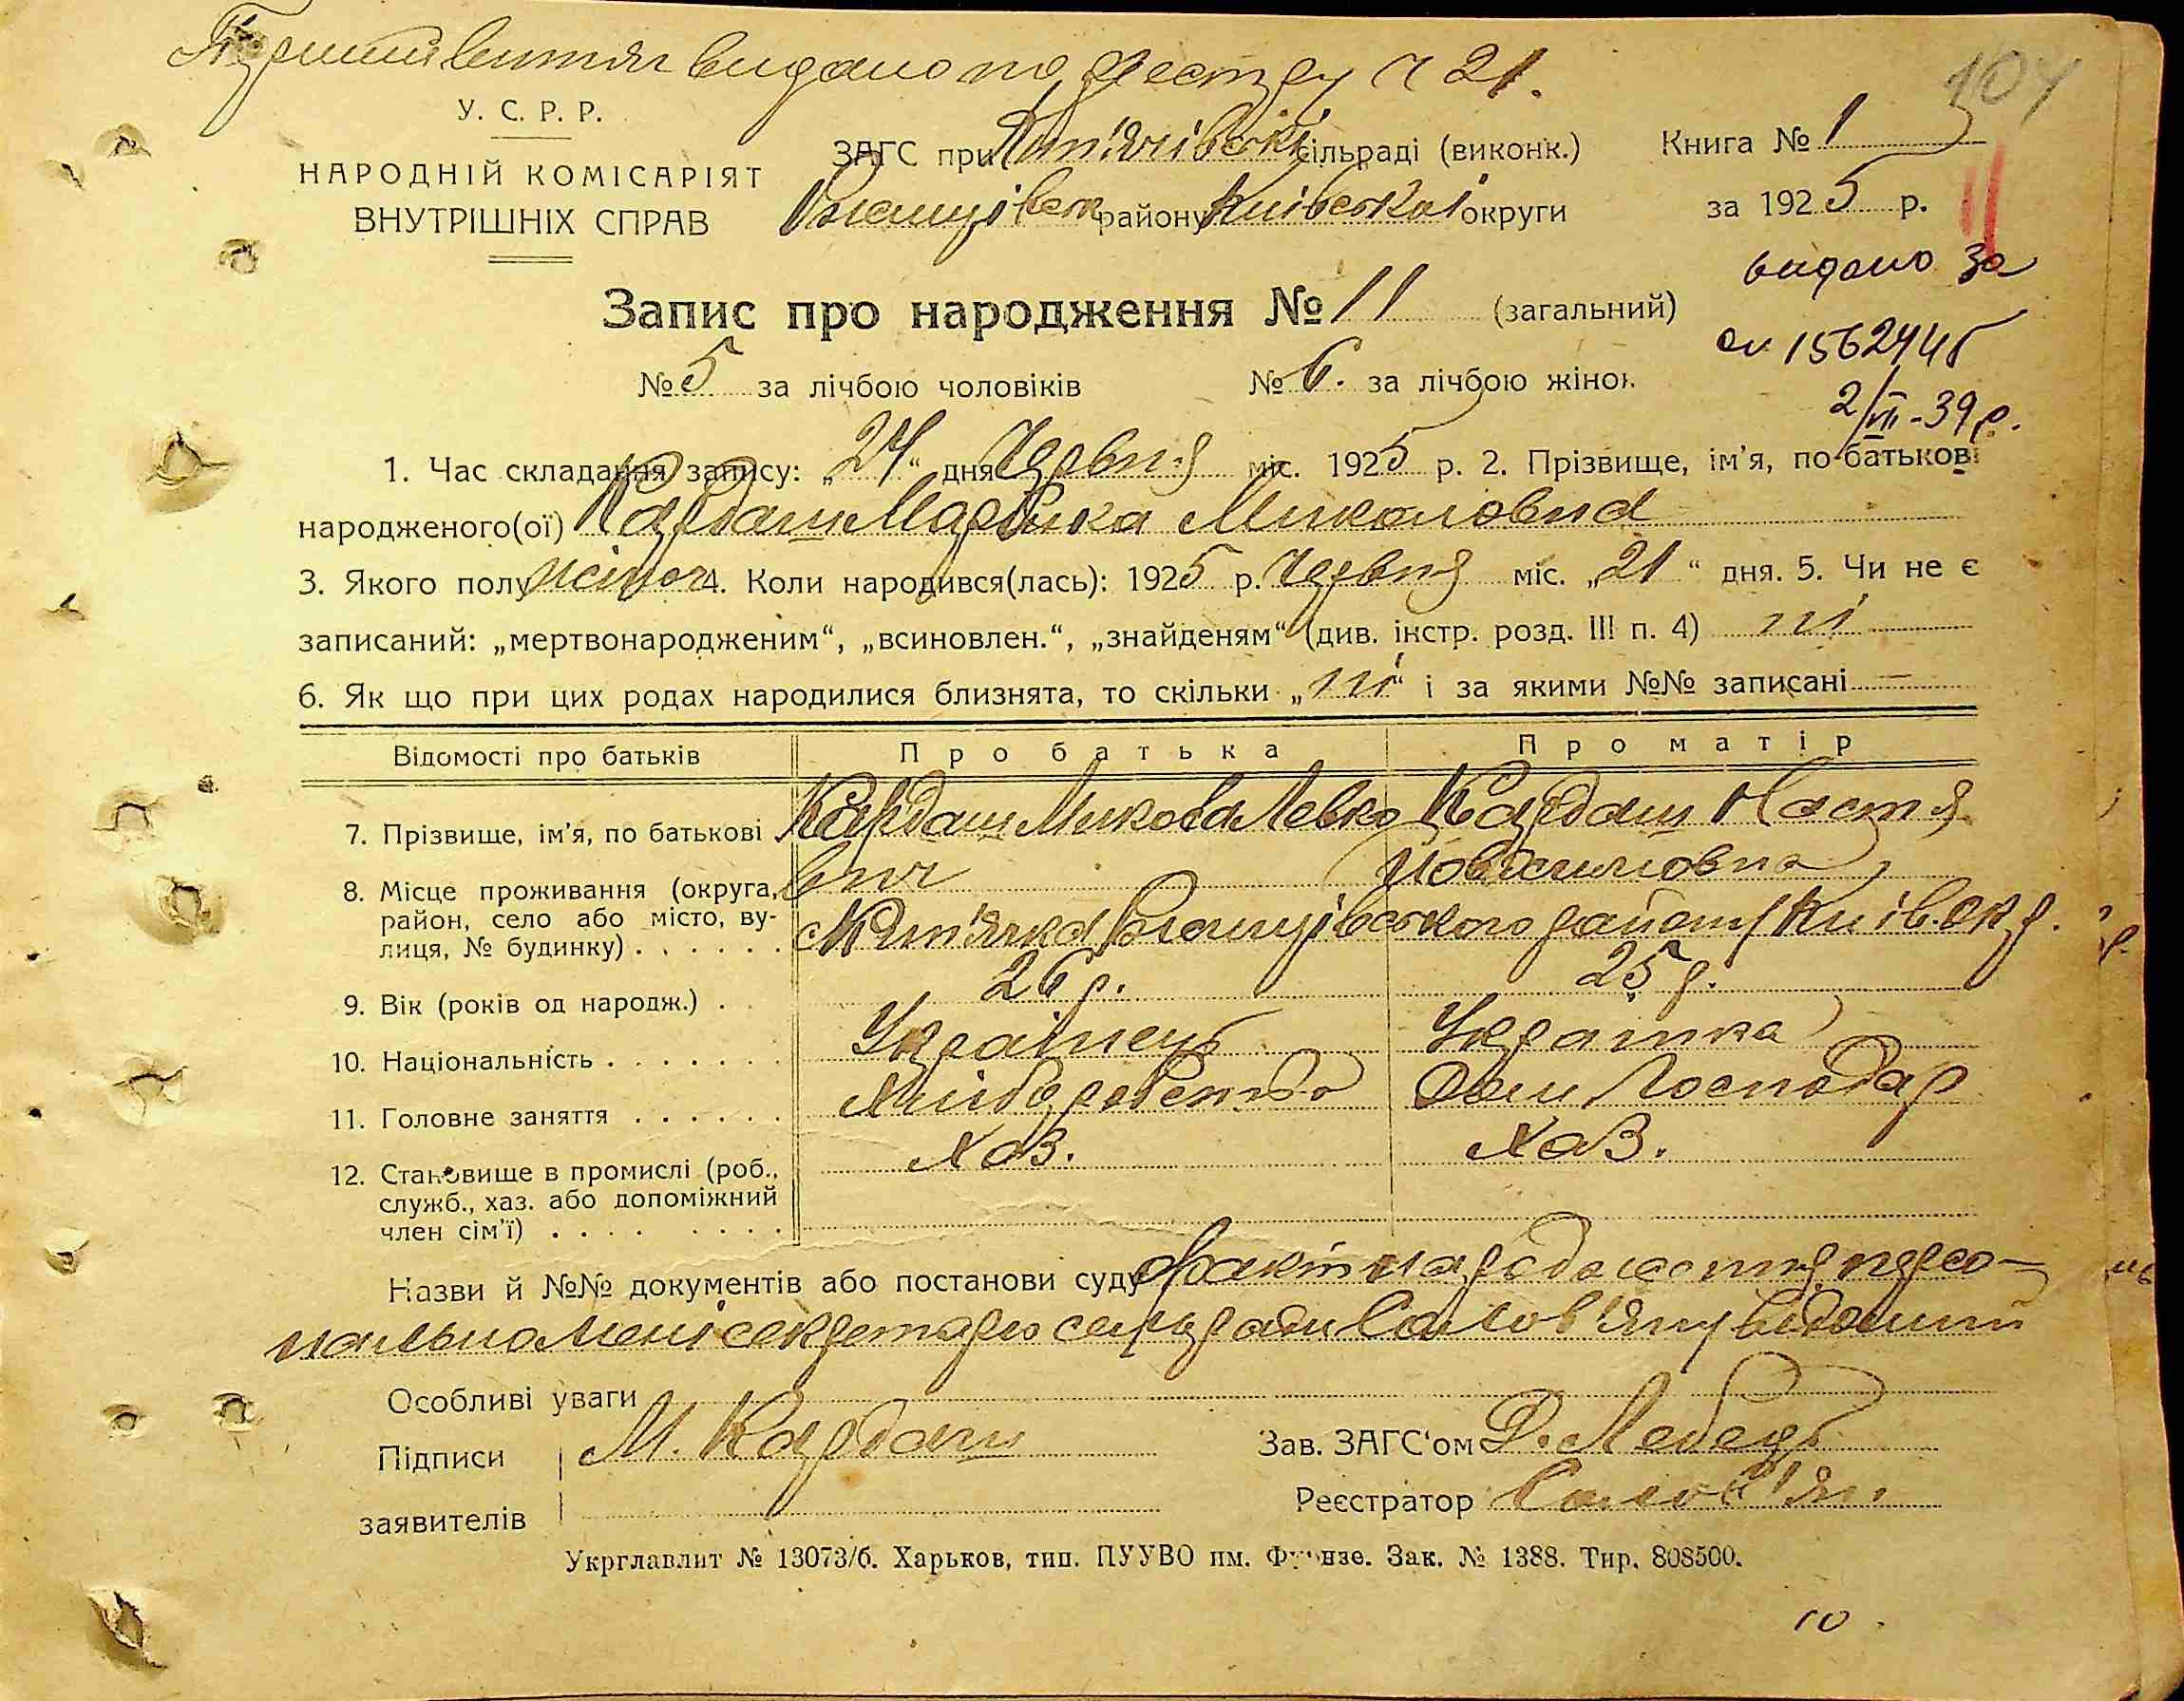 видано по реєстру № 21.
104
У. С. Р. Р.
НАРОДНІЙ КОМІСАРІЯТ
ВНУТРІШНІХ СПРАВ
ЗАГС при Кип'ячівські сільраді (виконк.)
району Київської округи
Книга № 1
за 1925 р.
видано за
Запис про народження № 11 (загальний)
№ 5 за лічбою чоловіків № 6. за лічбою жінок
2/VII-39 р.
1. Час складання запису: „24“ дня Червня міс. 1925 р. 2. Прізвище, ім'я, по-батькові
народженого(ої) Кардаш Марійка Миколовна
3. Якого полу жіноч 4. Коли народився(лась): 1925 р. Червня міс. „21“ дня. 5. Чи не є
записаний: „мертвонародженим“, „всиновлен.“, „знайденям“ (див. інстр. розд. III п. 4) ні
6. Як що при цих родах народилися близнята, то скільки „ні“ і за якими №№ записані —
Відомості про батьків Про батька Про матір
7. Прізвище, ім'я, по батькові Кардаш Микола Левко Кардаш Настя
вич
8. Місце проживання (округа,
район, село або місто, ву-
лиця, № будинку) . . . . . . району Київ. окр.
9. Вік (років од народж.) . 26 р. 25 р.
10. Національність . . . . . . . Українець Українка
11. Головне заняття . . . . . . Хліборобство Дом Господар
12. Становище в промислі (роб.,
служб., хаз. або допоміжний
член сім'ї) . . . . . . . . . Хаз. Хаз.
Назви й №№ документів або постанови суду факт народження персо-
нально мені секретарю сельради Солов'яну відомий
Особливі уваги
Підписи М. Кардаш
заявителів
Зав. ЗАГС'ом Д. Лебедь
Реєстратор Солов'ян
Укрглавлит № 13073/б. Харьков, тип. ПУУВО им. Фрунзе. Зак. № 1388. Тир. 808500.
10